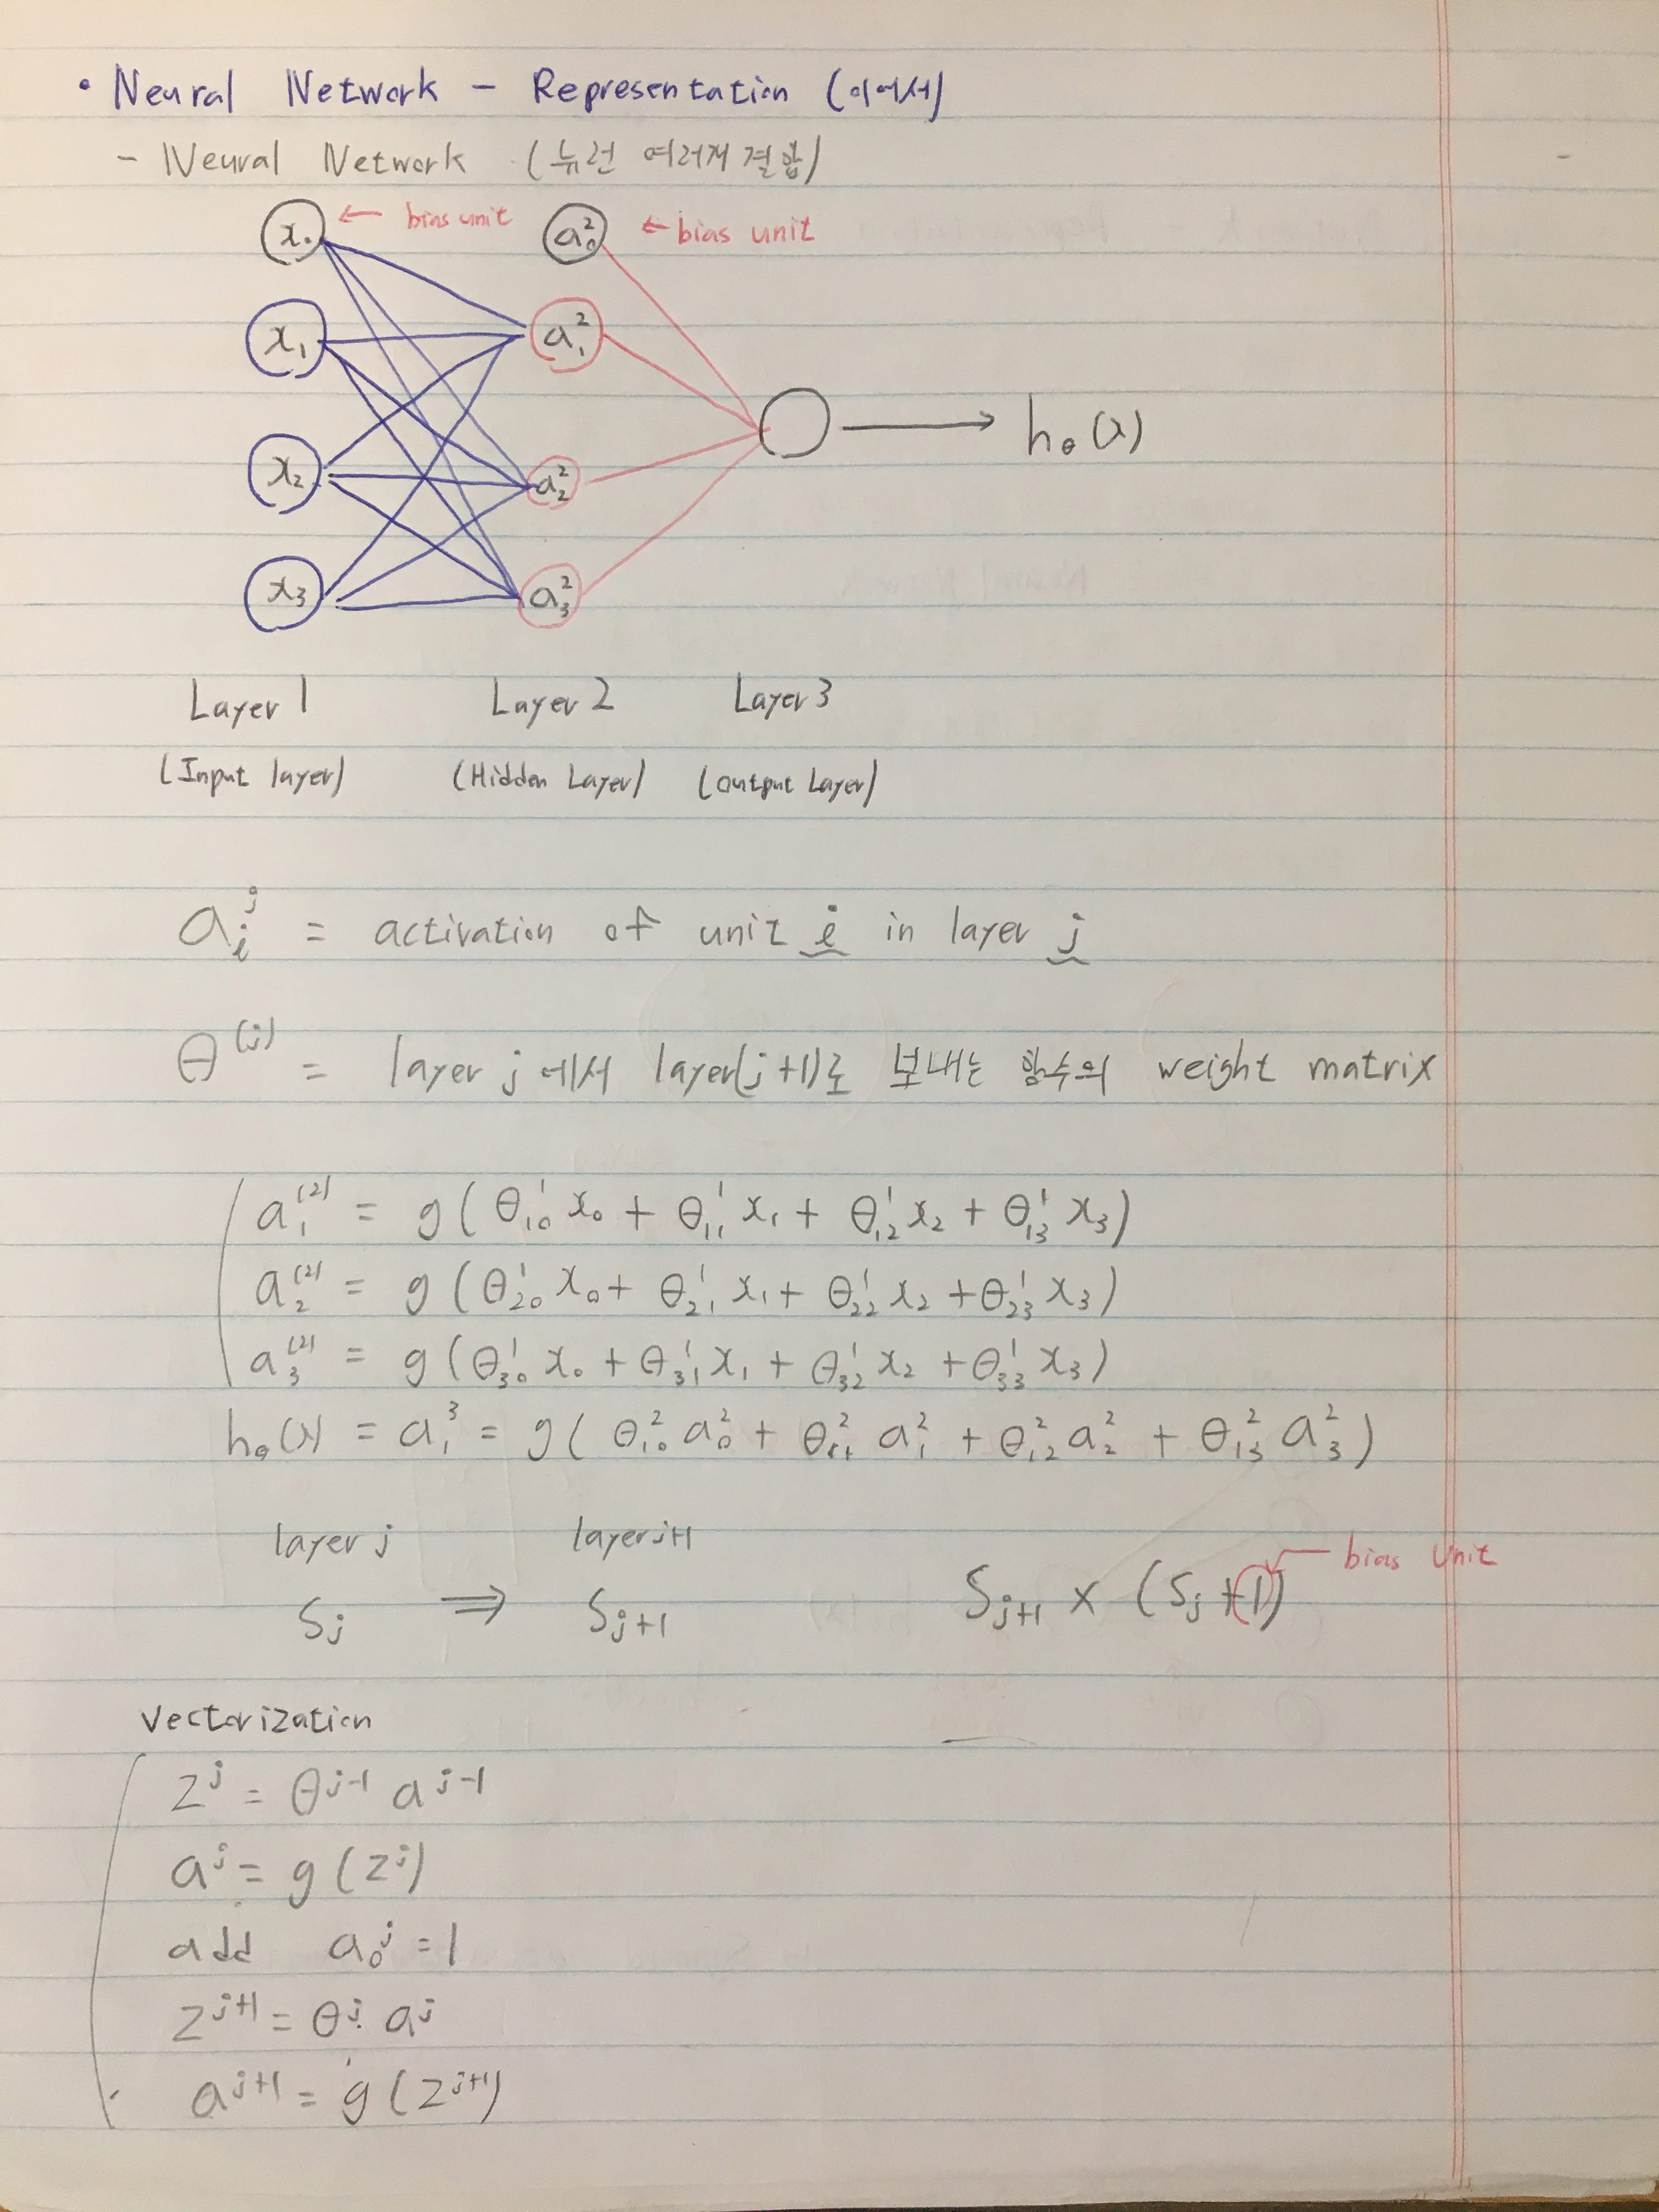 • Neural Network - Representation (이어서)
- Neural Network (뉴런 여러개 결합)
x₀ ← bias unit a₀² ← bias unit
x₁ a₁²
h_θ(x)
x₂ a₂²
x₃ a₃²
Layer 1 Layer 2 Layer 3
(Input layer) (Hidden Layer) (Output Layer)
aᵢʲ = activation of unit i in layer j
θ^(j) = layer j에서 layer(j+1)로 보내는 함수의 weight matrix
a₁^(2) = g(θ₁₀¹x₀ + θ₁₁¹x₁ + θ₁₂¹x₂ + θ₁₃¹x₃)
a₂^(2) = g(θ₂₀¹x₀ + θ₂₁¹x₁ + θ₂₂¹x₂ + θ₂₃¹x₃)
a₃^(2) = g(θ₃₀¹x₀ + θ₃₁¹x₁ + θ₃₂¹x₂ + θ₃₃¹x₃)
h_θ(x) = a₁³ = g(θ₁₀²a₀² + θ₁₁²a₁² + θ₁₂²a₂² + θ₁₃²a₃²)
layer j layer j+1
S_j ⇒ S_{j+1} S_{j+1} × (S_j+1) ← bias unit
Vectorization
z^j = θ^{j-1} a^{j-1}
a^j = g(z^j)
add a₀^j = 1
z^{j+1} = θ^j a^j
a^{j+1} = g(z^{j+1})